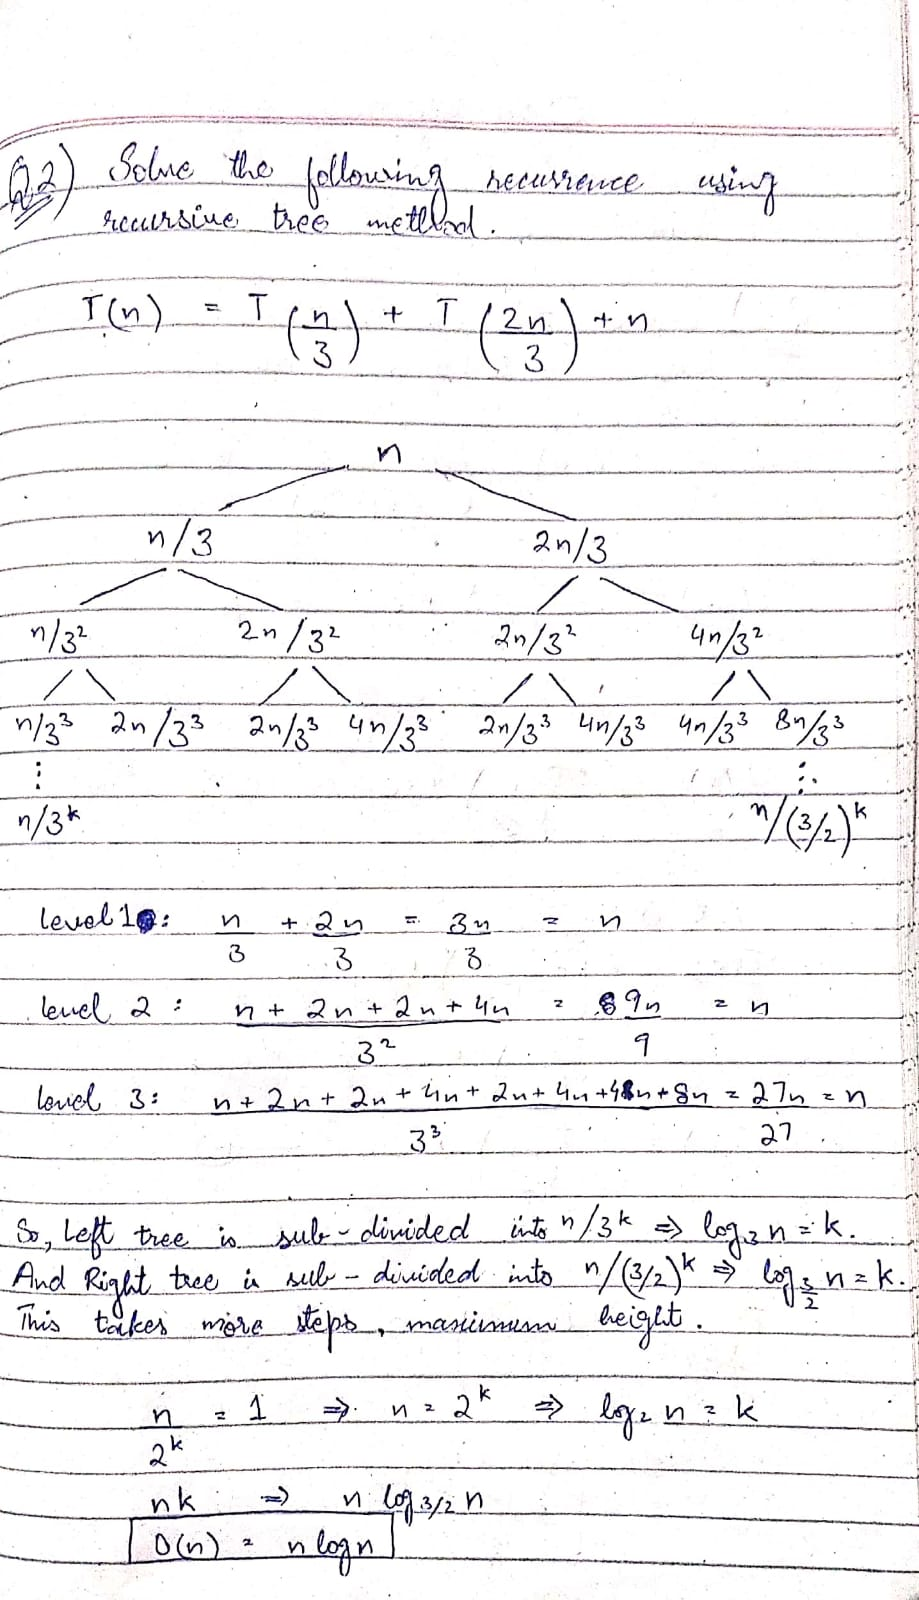 Q.2) Solve the following recurrence using
recursive tree method.
T(n) = T(n/3) + T(2n/3) + n
n
n/3 2n/3
n/3² 2n/3² 2n/3² 4n/3²
n/3³ 2n/3³ 2n/3³ 4n/3³ 2n/3³ 4n/3³ 4n/3³ 8n/3³
⋮ ⋱
n/3ᵏ n/(3/2)ᵏ
level 1: n/3 + 2n/3 = 3n/3 = n
level 2: (n + 2n + 2n + 4n)/3² = 9n/9 = n
level 3: (n + 2n + 2n + 4n + 2n + 4n + 4n + 8n)/3³ = 27n/27 = n
So, Left tree is sub-divided into n/3ᵏ ⇒ log₃ n = k.
And Right tree is sub-divided into n/(3/2)ᵏ ⇒ log_{3/2} n = k.
This takes more steps, maximum height.
n/2ᵏ = 1 ⇒ n = 2ᵏ ⇒ log₂ n = k
nk ⇒ n log_{3/2} n
O(n) = n log n